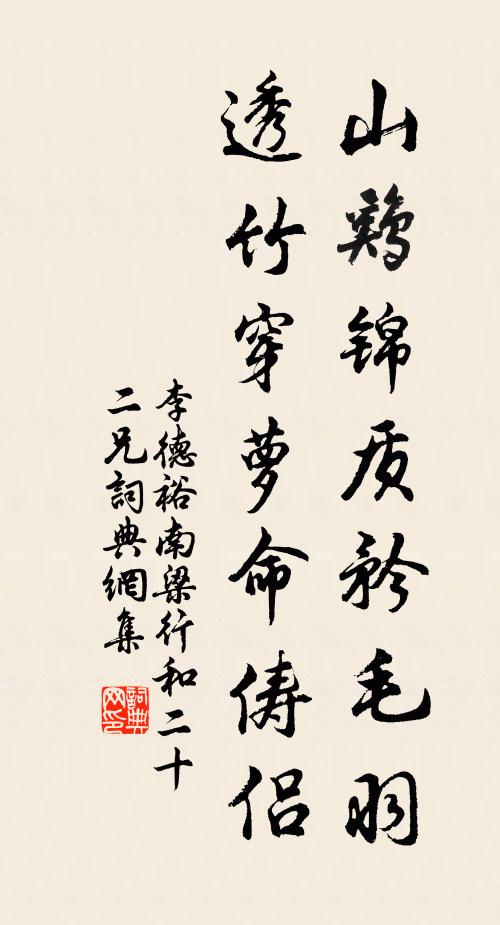 山鷄锦质矜毛羽
透竹穿萝命俦侣
李德裕南梁行和二十
二兄詞典網集
詞典
网印